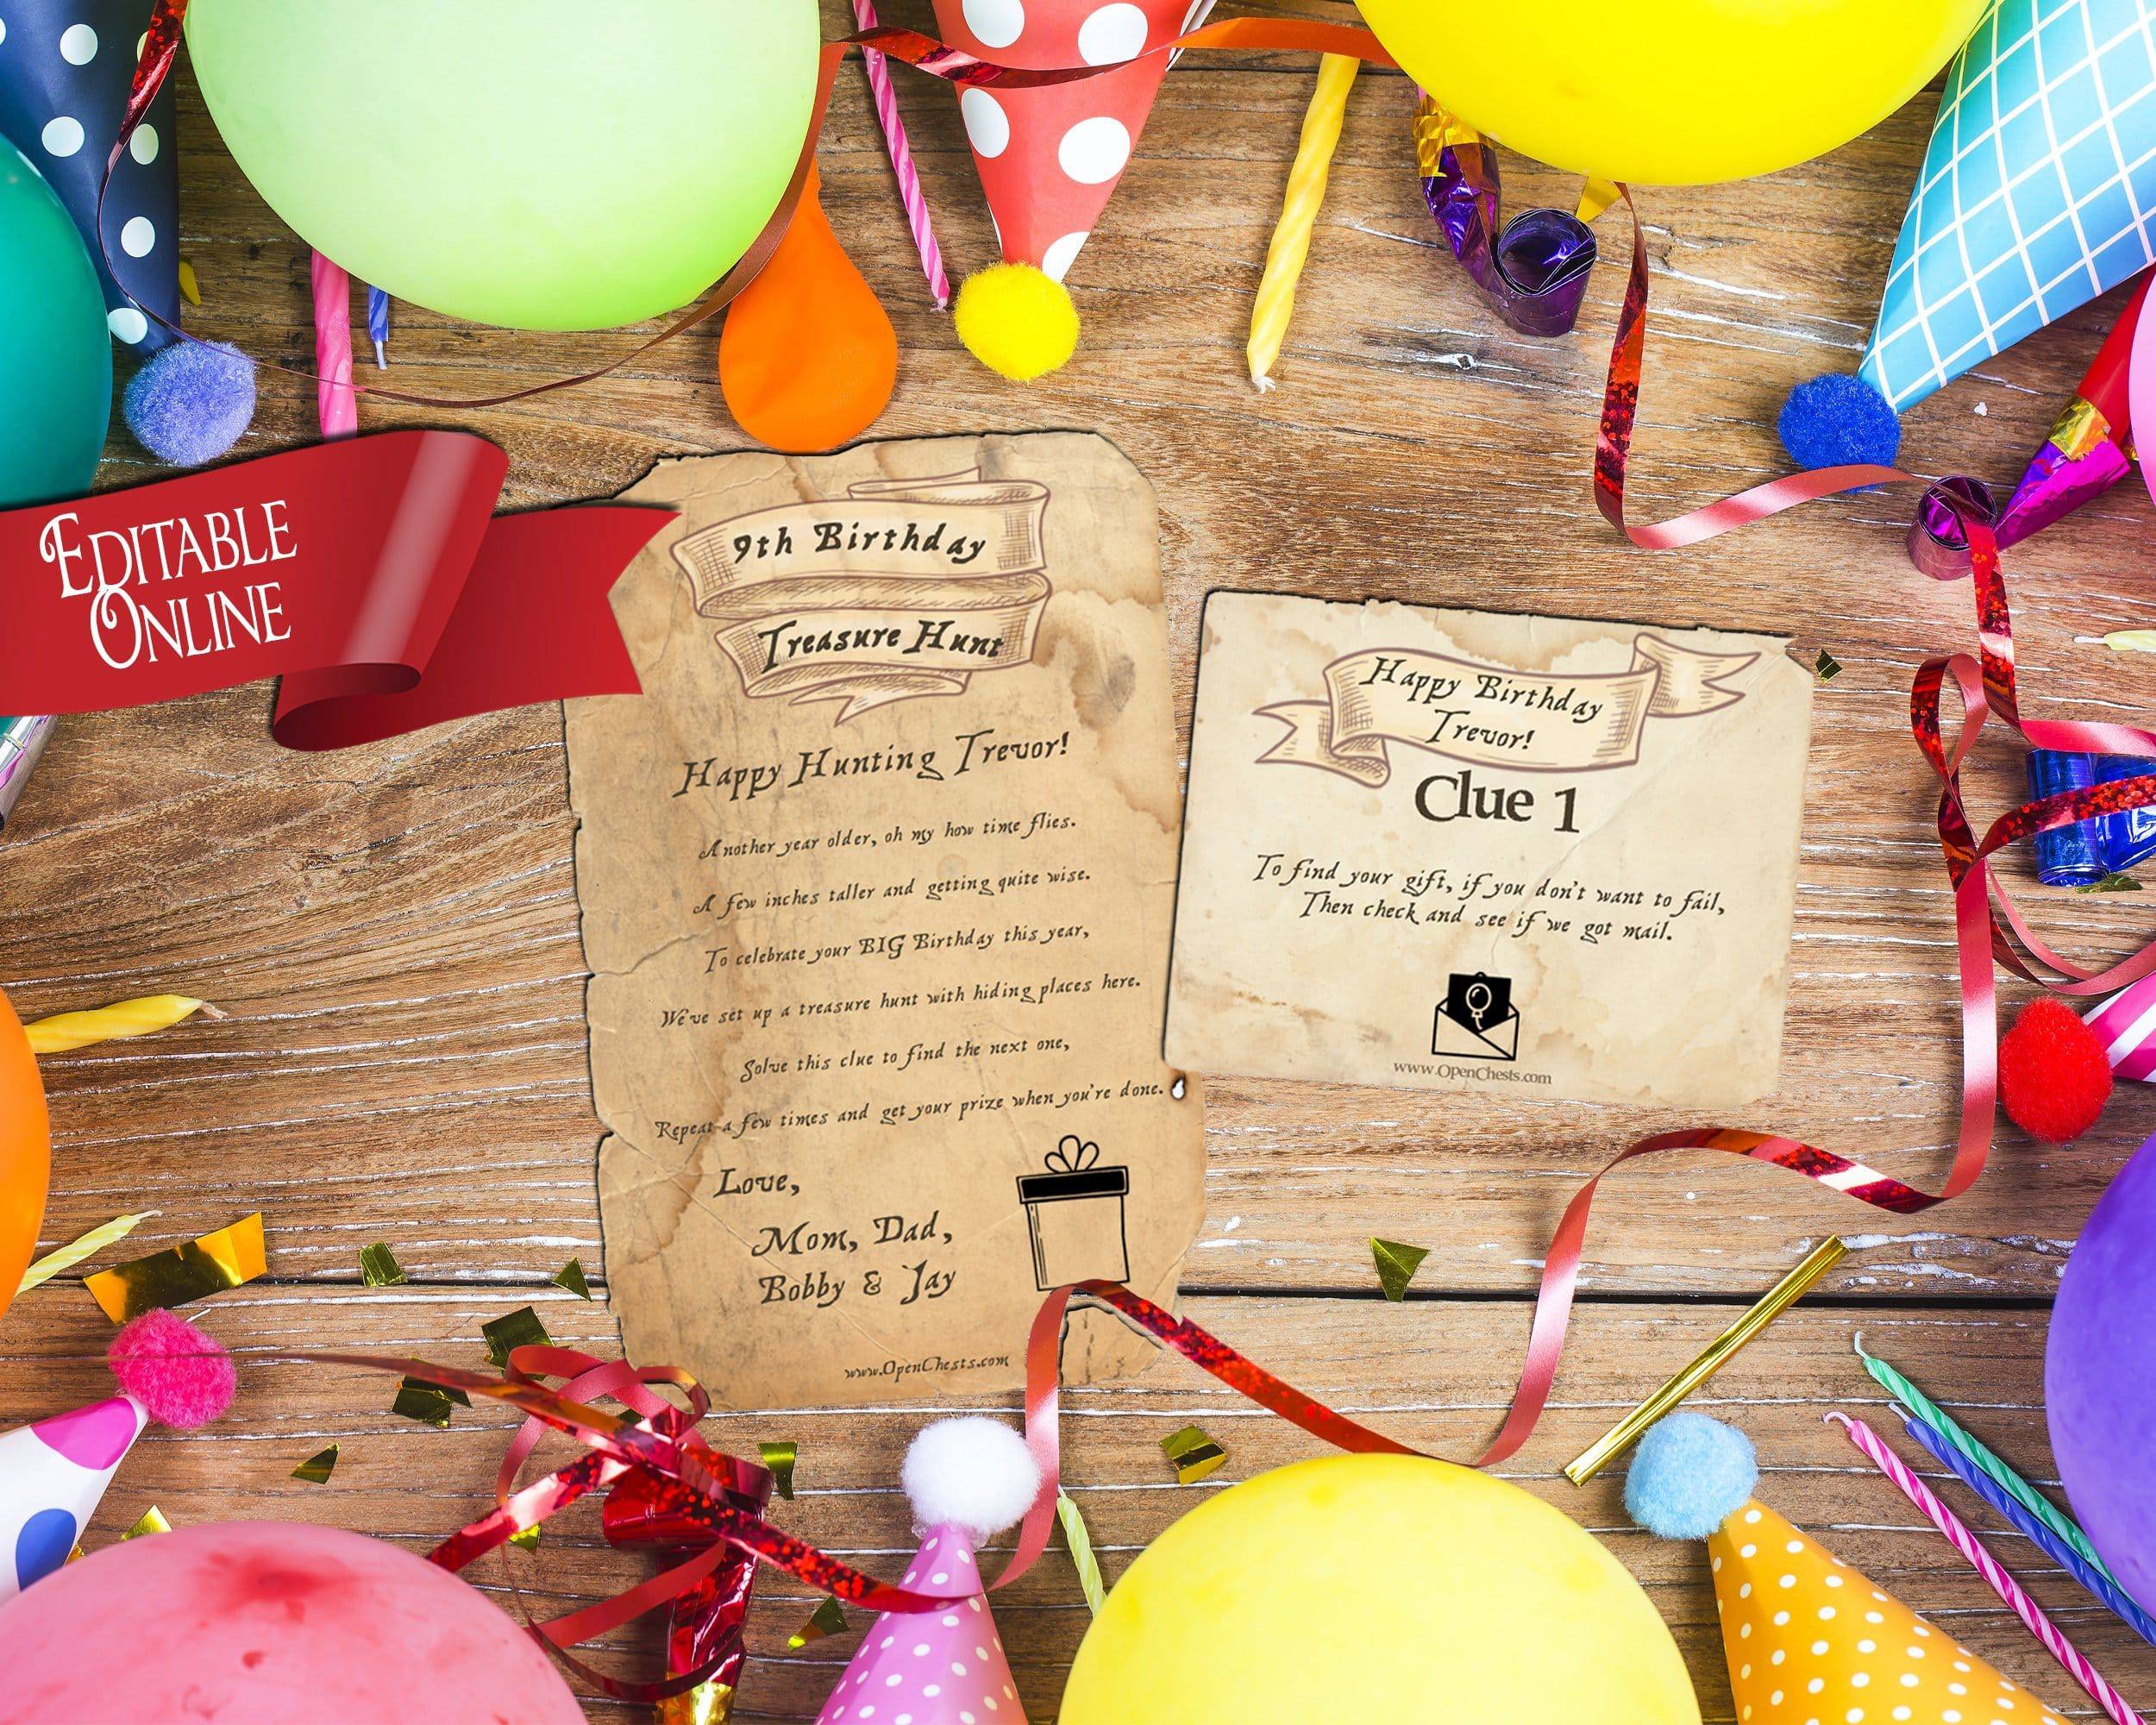 EDITABLE
ONLINE
9th Birthday
Treasure Hunt
Happy Hunting Trevor!
Another year older, oh my how time flies.
A few inches taller and getting quite wise.
To celebrate your BIG Birthday this year,
We've set up a treasure hunt with hiding places here.
Solve this clue to find the next one,
Repeat a few times and get your prize when you're done.
Love,
Mom, Dad,
Bobby & Jay
www.OpenChests.com
Happy Birthday
Trevor!
Clue 1
To find your gift, if you don't want to fail,
Then check and see if we got mail.
www.OpenChests.com